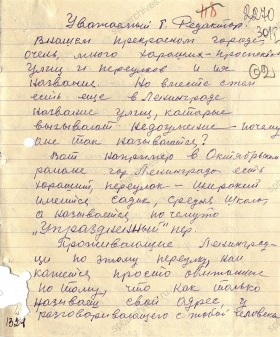 Уважаемый т. Редактор!
2240
В нашем прекрасном городе
очень много хороших проспектов
улиц и переулков и их
названия. Но вместе с тем
есть еще в Ленинграде
название улиц, которые
вызывают недоумение – почему
они так называются?
Вот например в Октябрьском
районе гор Ленинграда есть
хороший, переулок – широкий
имеется садик, средняя школа
а называется почему то
„Упраздненный" пер.
Проживающие Ленинград-
цы по этому переулку, нам
кажется просто
по тому, что как только
называет свой адрес у
разговаривающего с тобой человека
1324